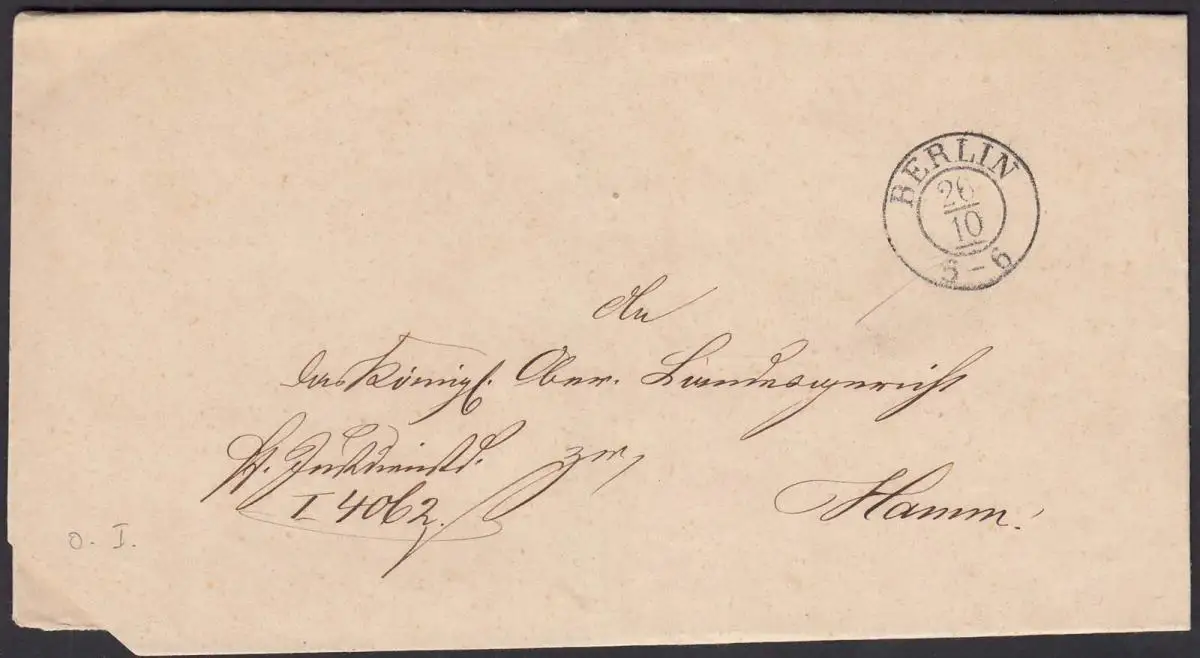 BERLIN
26
10
5-6
An
das Königl. Ober. Landesgericht
zu
Hamm.
I 4062.
O. I.